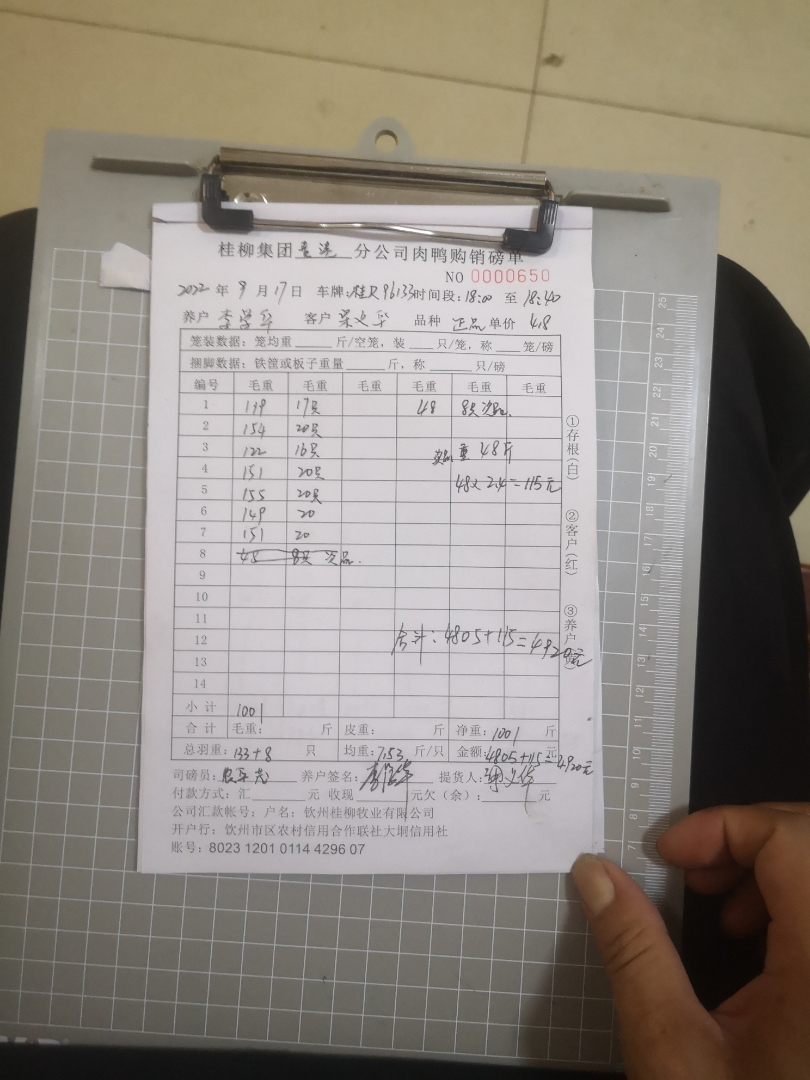 桂柳集团 分公司肉鸭购销磅单
NO 0000650
2022年9月17日 车牌:桂R96133时间段:18:00 至 18:40
养户 李学华 客户 梁文华 品种 正品 单价 4.8
笼装数据：笼均重 斤/空笼，装 只/笼，称 笼/磅
捆脚数据：铁筐或板子重量 斤，称 只/磅
编号 毛重 毛重 毛重 毛重 毛重 毛重
1 119 17只 48 8只次品.
2 154 20只
3 122 16只 次品重 48斤
4 151 20只
5 155 20只 48×2.4=115元
6 149 20
7 151 20
8 48 8只 次品.
9
10
11
12 合计:4805+115=4920元
13
14
小计 1001
合计 毛重： 斤 皮重： 斤 净重：1001 斤
总羽重：133+8 只 均重：7.53 斤/只 金额：4805+115=4920元 元
司磅员： 养户签名： 提货人：
付款方式：汇 元 收现 元欠（余）： 元
公司汇款帐号：户名：钦州桂柳牧业有限公司
开户行：钦州市区农村信用合作联社大垌信用社
账号：8023 1201 0114 4296 07
①存根(白)
②客户(红)
③养户
25
24
23
22
21
20
19
18
17
16
15
14
13
12
11
10
9
8
7